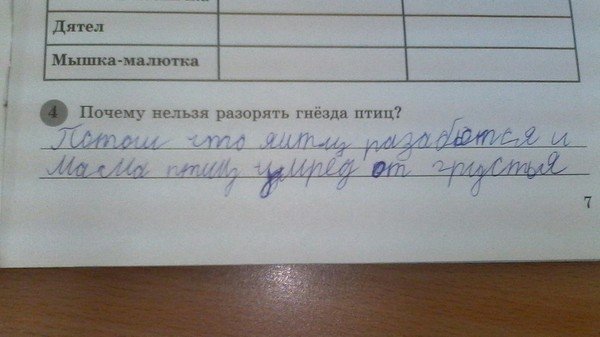 Дятел
Мышка-малютка
4 Почему нельзя разорять гнёзда птиц?
Потом что яитцы разабются и
мама птиц умрёд от грустья
7